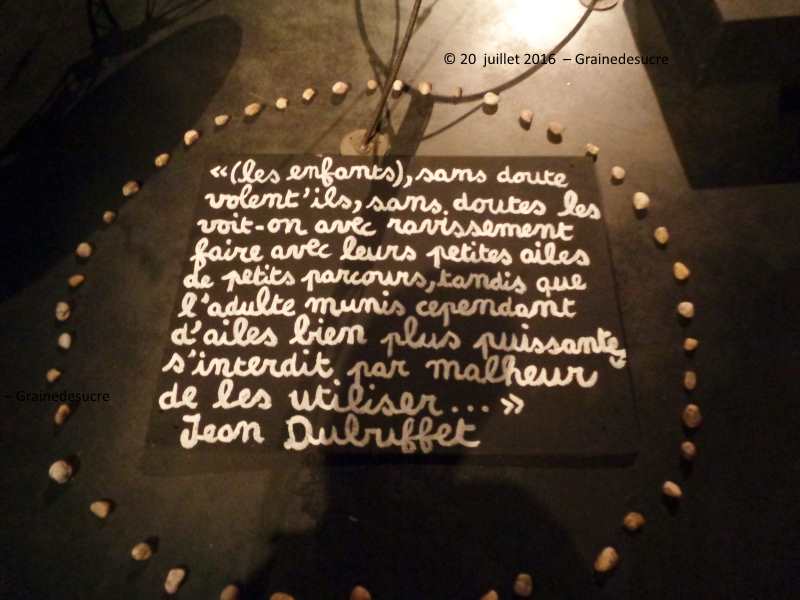 © 20 juillet 2016 – Grainedesucre
«(les enfants), sans doute
volent'ils, sans doutes les
voit-on avec ravissement
faire avec leurs petites ailes
de petits parcours, tandis que
l'adulte munis cependant
d'ailes bien plus puissantes
s'interdit par malheur
de les utiliser... »
Jean Dubuffet
– Grainedesucre